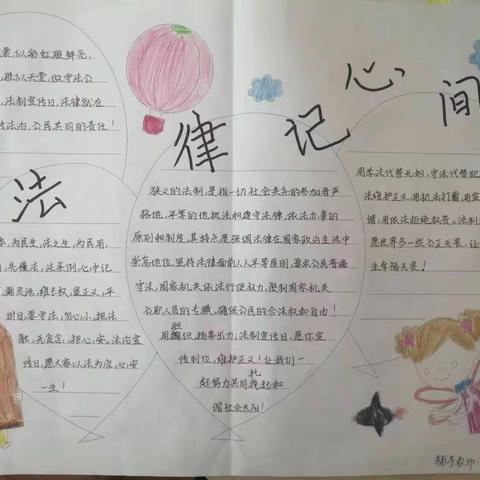 法律记心间
裳似彩虹极鲜亮,
胜似天堂,做守法公
法制宣传日,法律就在
法治,公民共同的责任!
本,为民生,法之生,为民用,
共懂法,法条例,心中记
最灵活,雄主权,显正义,平
时日,要守法,切心小,担法
默,无贪念,担心,安。法治宣
传日,愿大家以法为准,心,安
一生!
狭义的法制,是指一切社会关系的参加者严
格地,平等的地执法和遵守法律,依法办事的
原则和制度,其特点是强调法律在国家政治生活中
崇高地位,坚持法律面前人人平等原则,要求公民普遍
守法,国家机关依法行使权力,限制国家机关
公职人员的专横。确保公民的合法权和自由!
用胆识,扬善出力;法制宣传日,愿你宣
传到位,维护正义!让我们一
起努力共同托起和
谐社会太阳!
用学法代替无知,守法代替犯
法维护正义,用执法打霸,用宣
谱,用依法拒绝权贵。法制
愿世界多一些公正无畏,让
生幸福无丧!
辅导教师